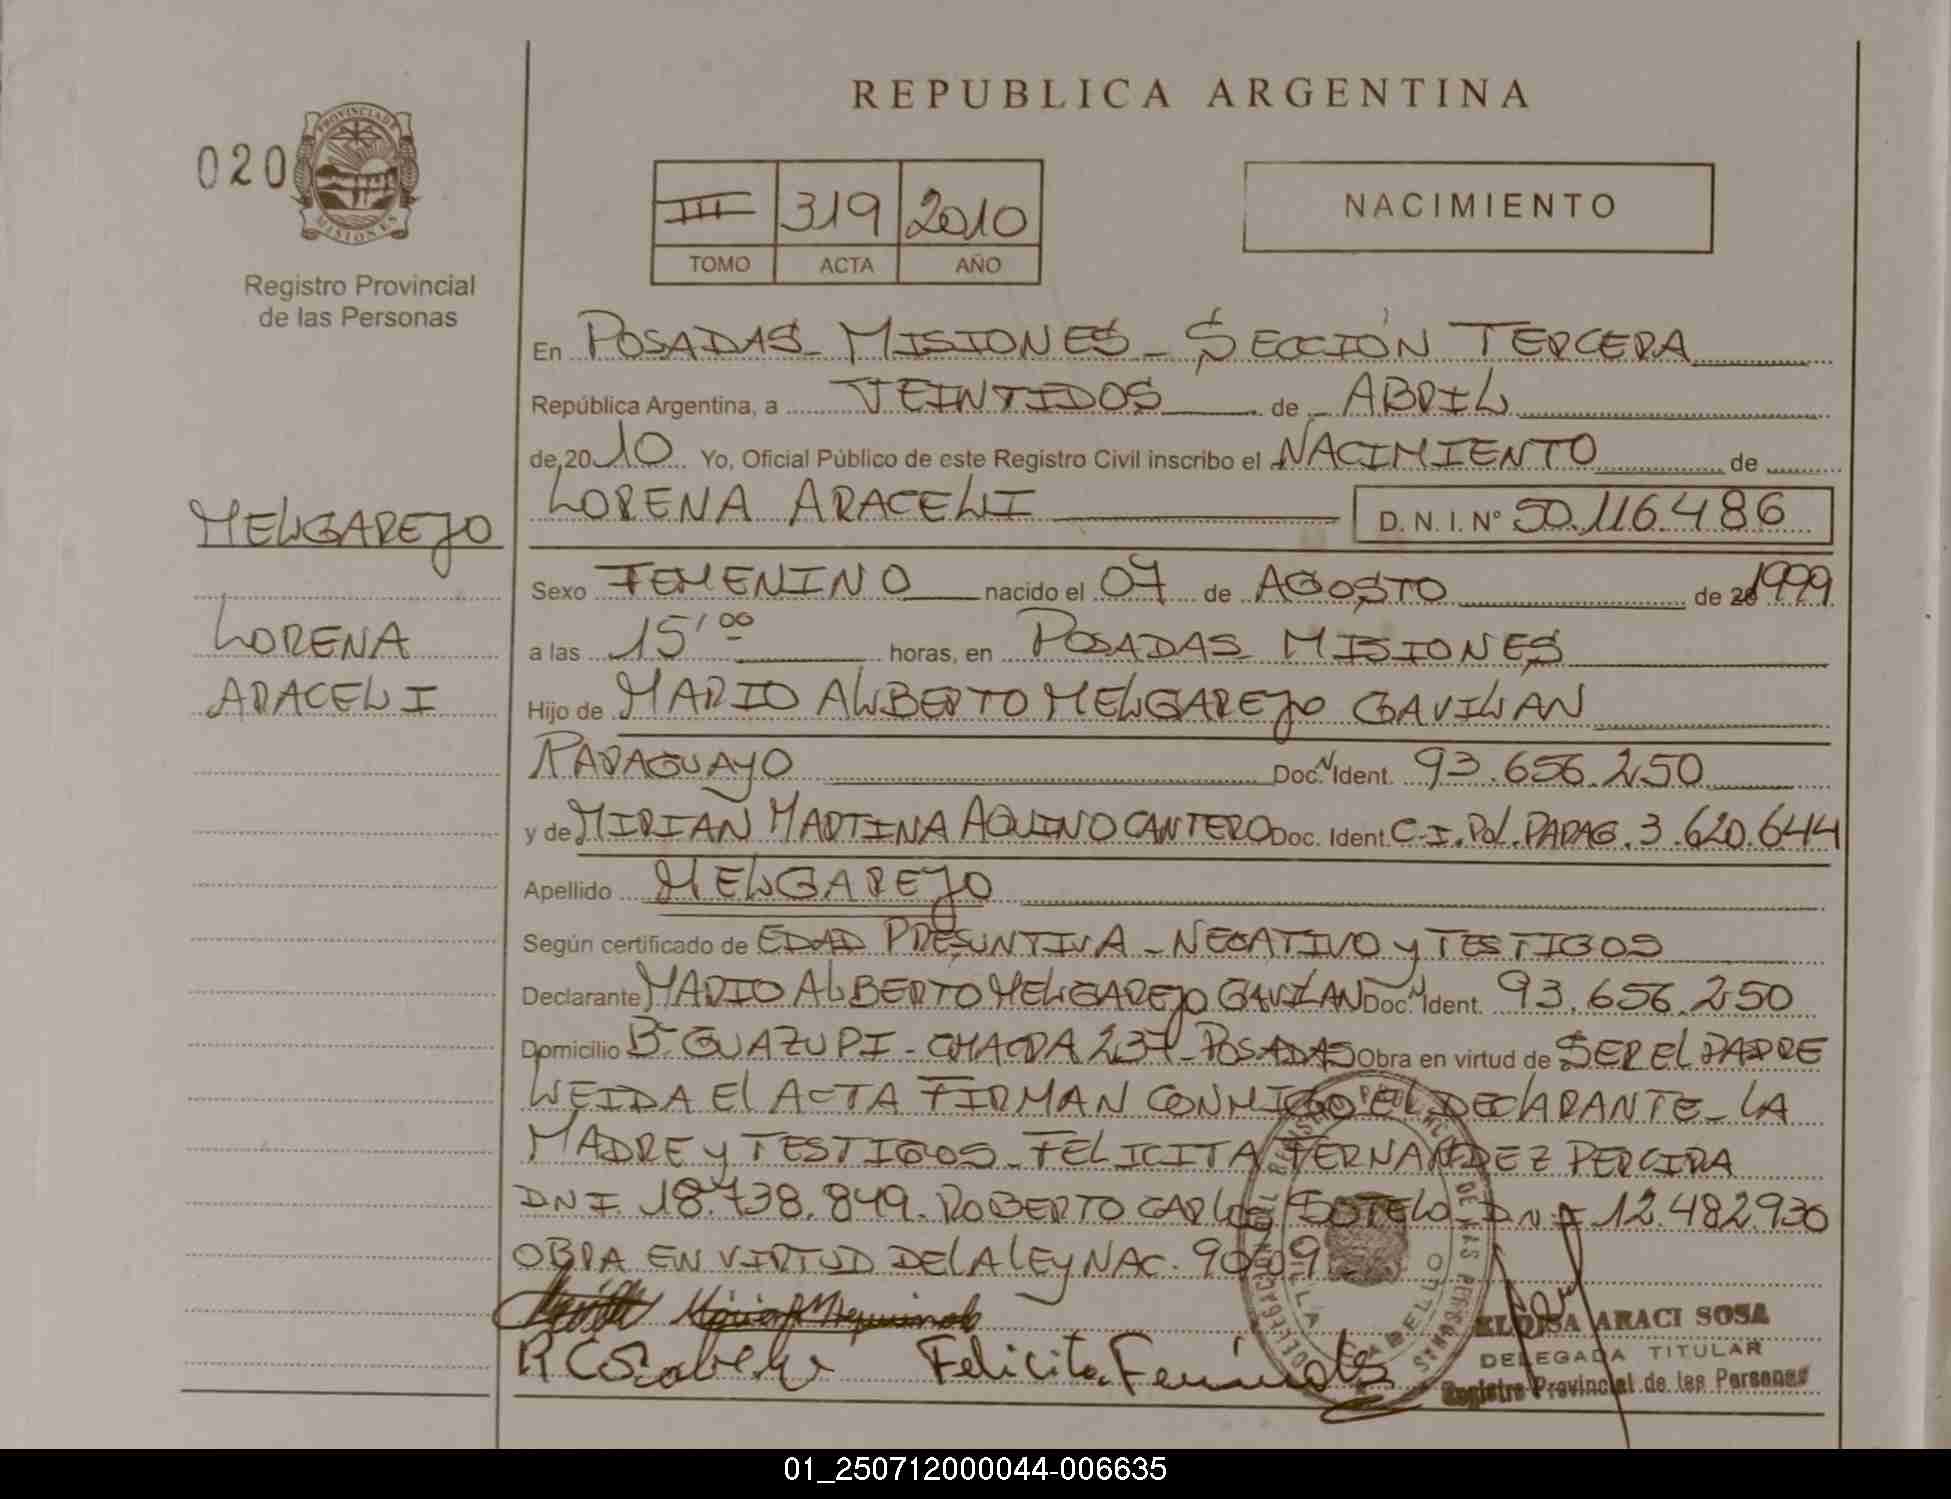 REPUBLICA ARGENTINA
020
PROVINCIA DE
MISIONES
Registro Provincial
de las Personas
III 319 2010
TOMO ACTA AÑO
NACIMIENTO
En POSADAS - MISIONES - SECCIÓN TERCERA
República Argentina, a VEINTIDOS de ABRIL
de 2010 Yo, Oficial Público de este Registro Civil inscribo el NACIMIENTO de
LORENA ARACELI D. N. I. N° 50.116.486
MELGAREJO
LORENA
ARACELI
Sexo FEMENINO nacido el 07 de AGOSTO de 20 1999
a las 15'00 horas, en POSADAS MISIONES
Hijo de MARIO ALBERTO MELGAREJO GAVILAN
PARAGUAYO Doc. N Ident. 93.656.250
y de MIRIAN MARTINA AQUINO CANTERO Doc. Ident. C.I. POL. PARAG. 3.620.644
Apellido MELGAREJO
Según certificado de EDAD PRESUNTIVA - NEGATIVO y TESTIGOS
Declarante MARIO ALBERTO MELGAREJO GAVILAN Doc. N Ident. 93.656.250
Domicilio B° GUAZUPI - CHACRA 237 - POSADAS Obra en virtud de SER EL PADRE
LEIDA El ACTA FIRMAN CONMIGO EL DEClARANTE - LA
MADRE y TESTIGOS - FELICITA FERNANDEZ PEREIRA
DNI 18.738.849. ROBERTO CARLOS SOTELO DNI 12.482.930
OBRA EN VIRTUD DE LA LEY NAC.
Felicita Fernández
VILLA CABELLO
ELOISA ARACI SOSA
DELEGADA TITULAR
Registro Provincial de las Personas
01_250712000044-006635